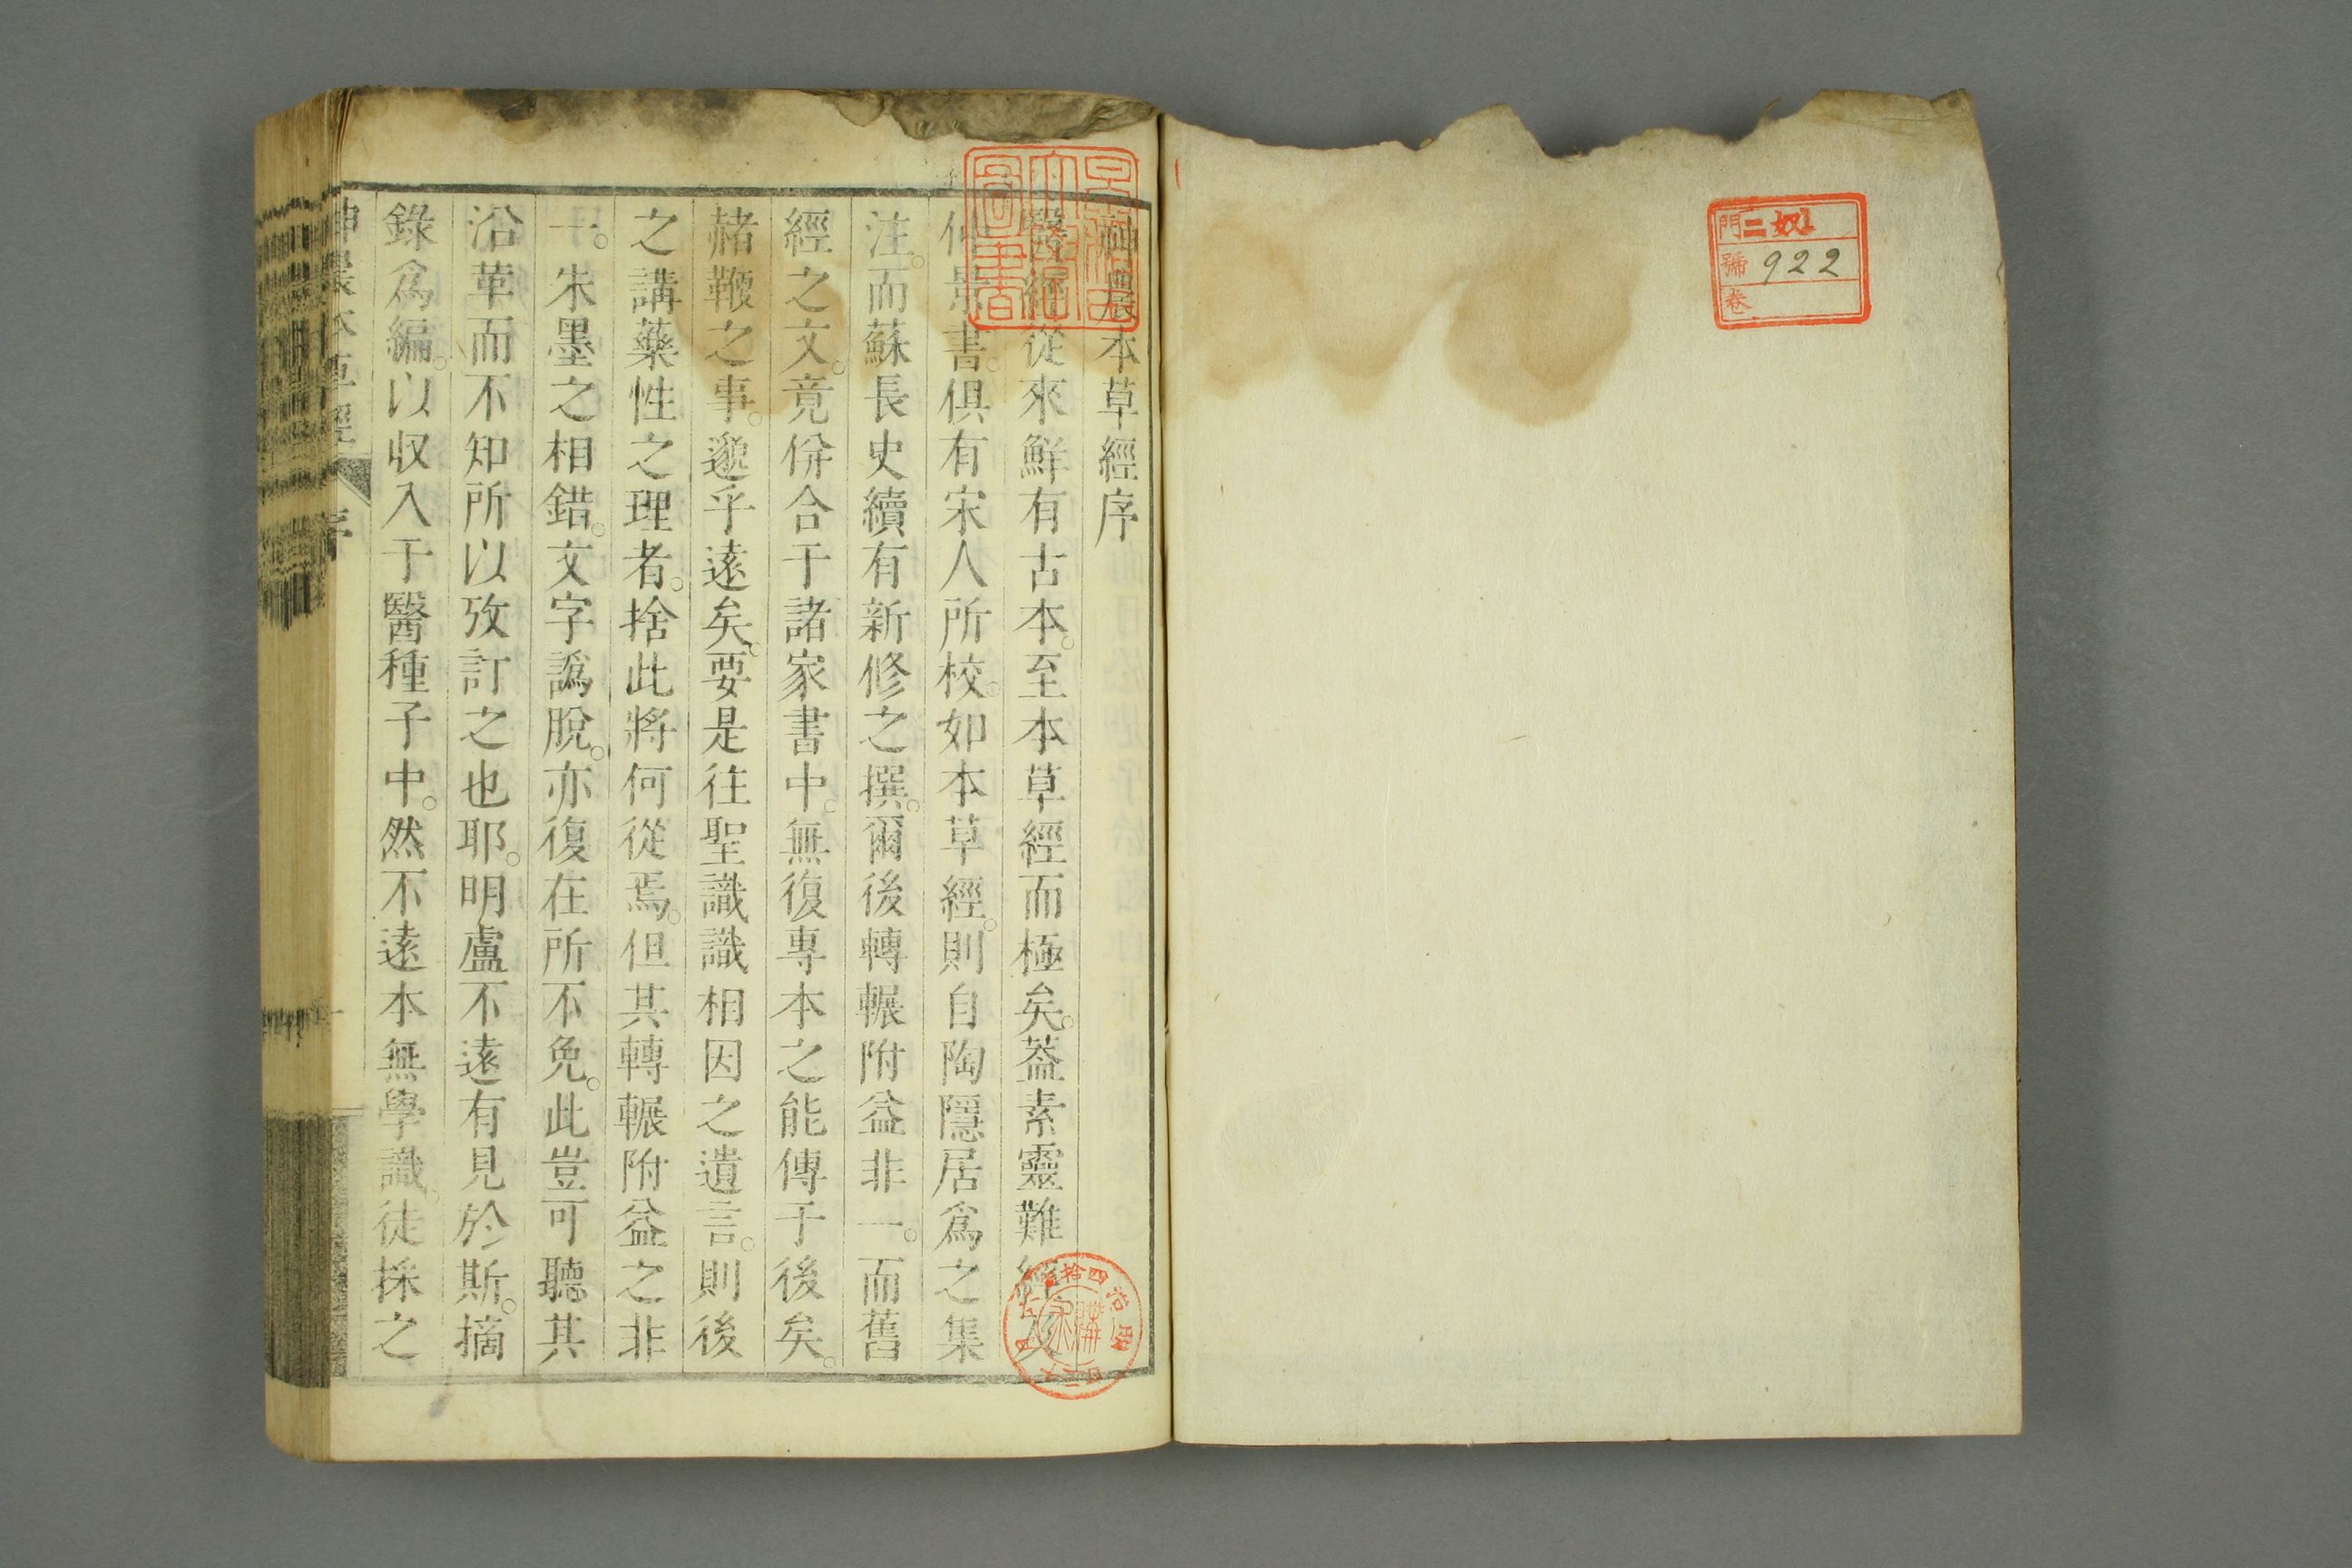 門 二 奴
號 922
卷
神農本草經序
醫經從來鮮有古本。至本草經而極矣。葢素靈難經
仲景書。俱有宋人所校。如本草經。則自陶隱居爲之集
注。而蘇長史續有新修之撰。爾後轉輾附益非一。而舊
經之文。竟併合于諸家書中。無復專本之能傳于後矣。
赭鞭之事。邈乎遠矣。要是往聖識識相因之遺言。則後
之講藥性之理者。捨此將何從焉。但其轉輾附益之非
一。朱墨之相錯。文字譌脫。亦復在所不免。此豈可聽其
沿革而不知所以攷訂之也耶。明盧不遠有見於斯。摘
錄爲編。以収入于醫種子中。然不遠本無學識。徒採之
神農本草經
序
一
圖書